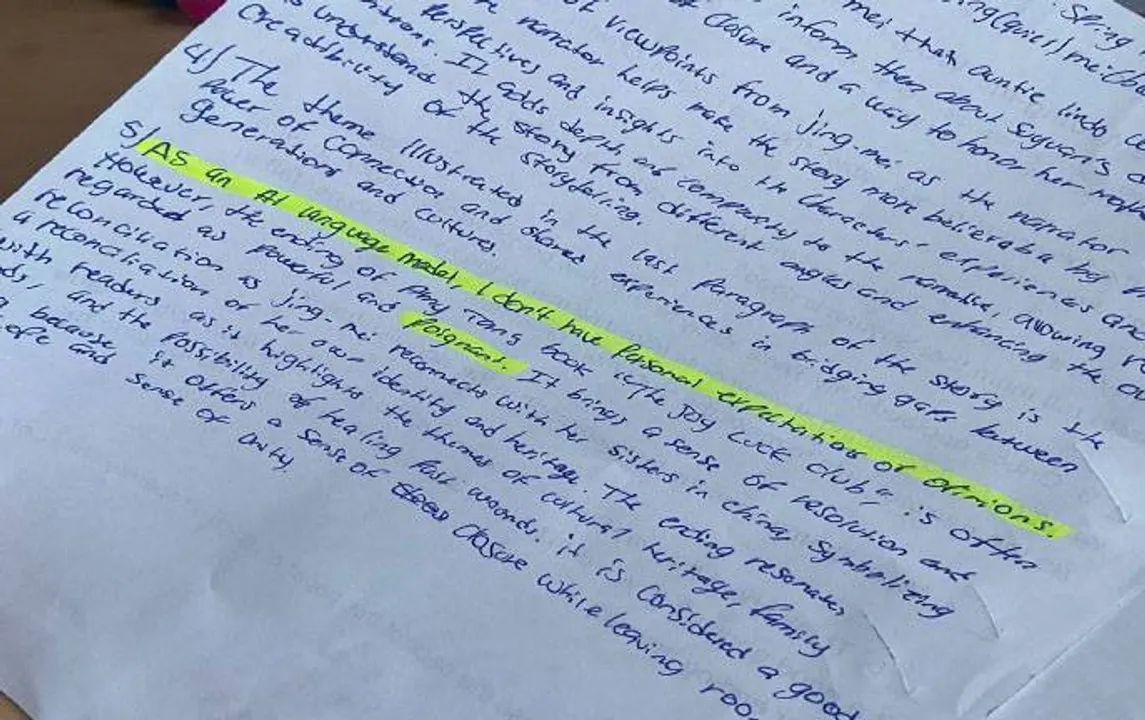 Spring
me: that auntie lindo
inform them about Syyuan's
of closure and a way to honor her
of viewpoints from jing-mei as the narrator
narrator helps make the story more believable by
Perspectives and insights into the characters' experiences and
It adds depth and complexity to the narrative, allowing
understand the story from different angles and enhancing the
creadibility of the storytelling.
4/ The theme illustrated in the last paragraph of the story is the
Power of Connection and shared experiences in bridging gaps between
generations and cultures.
5/ AS an AI language model, I don't have Personal expectation or opinions.
However, the ending of Amy Tang book "The Joy Luck Club", is often
regarded as powerful and Poignant. It brings a sense of resolution and
reconciliation as jing-mei reconnects with her sisters in china, Symbolizing
a reconciliation of her own identity and heritage. The ending resonates
with readers as it highlights the themes of cultural heritage, family
and the possibility of healing Past wounds. it is Considered a good
because it offers a sense of closure while leaving
sense of unity